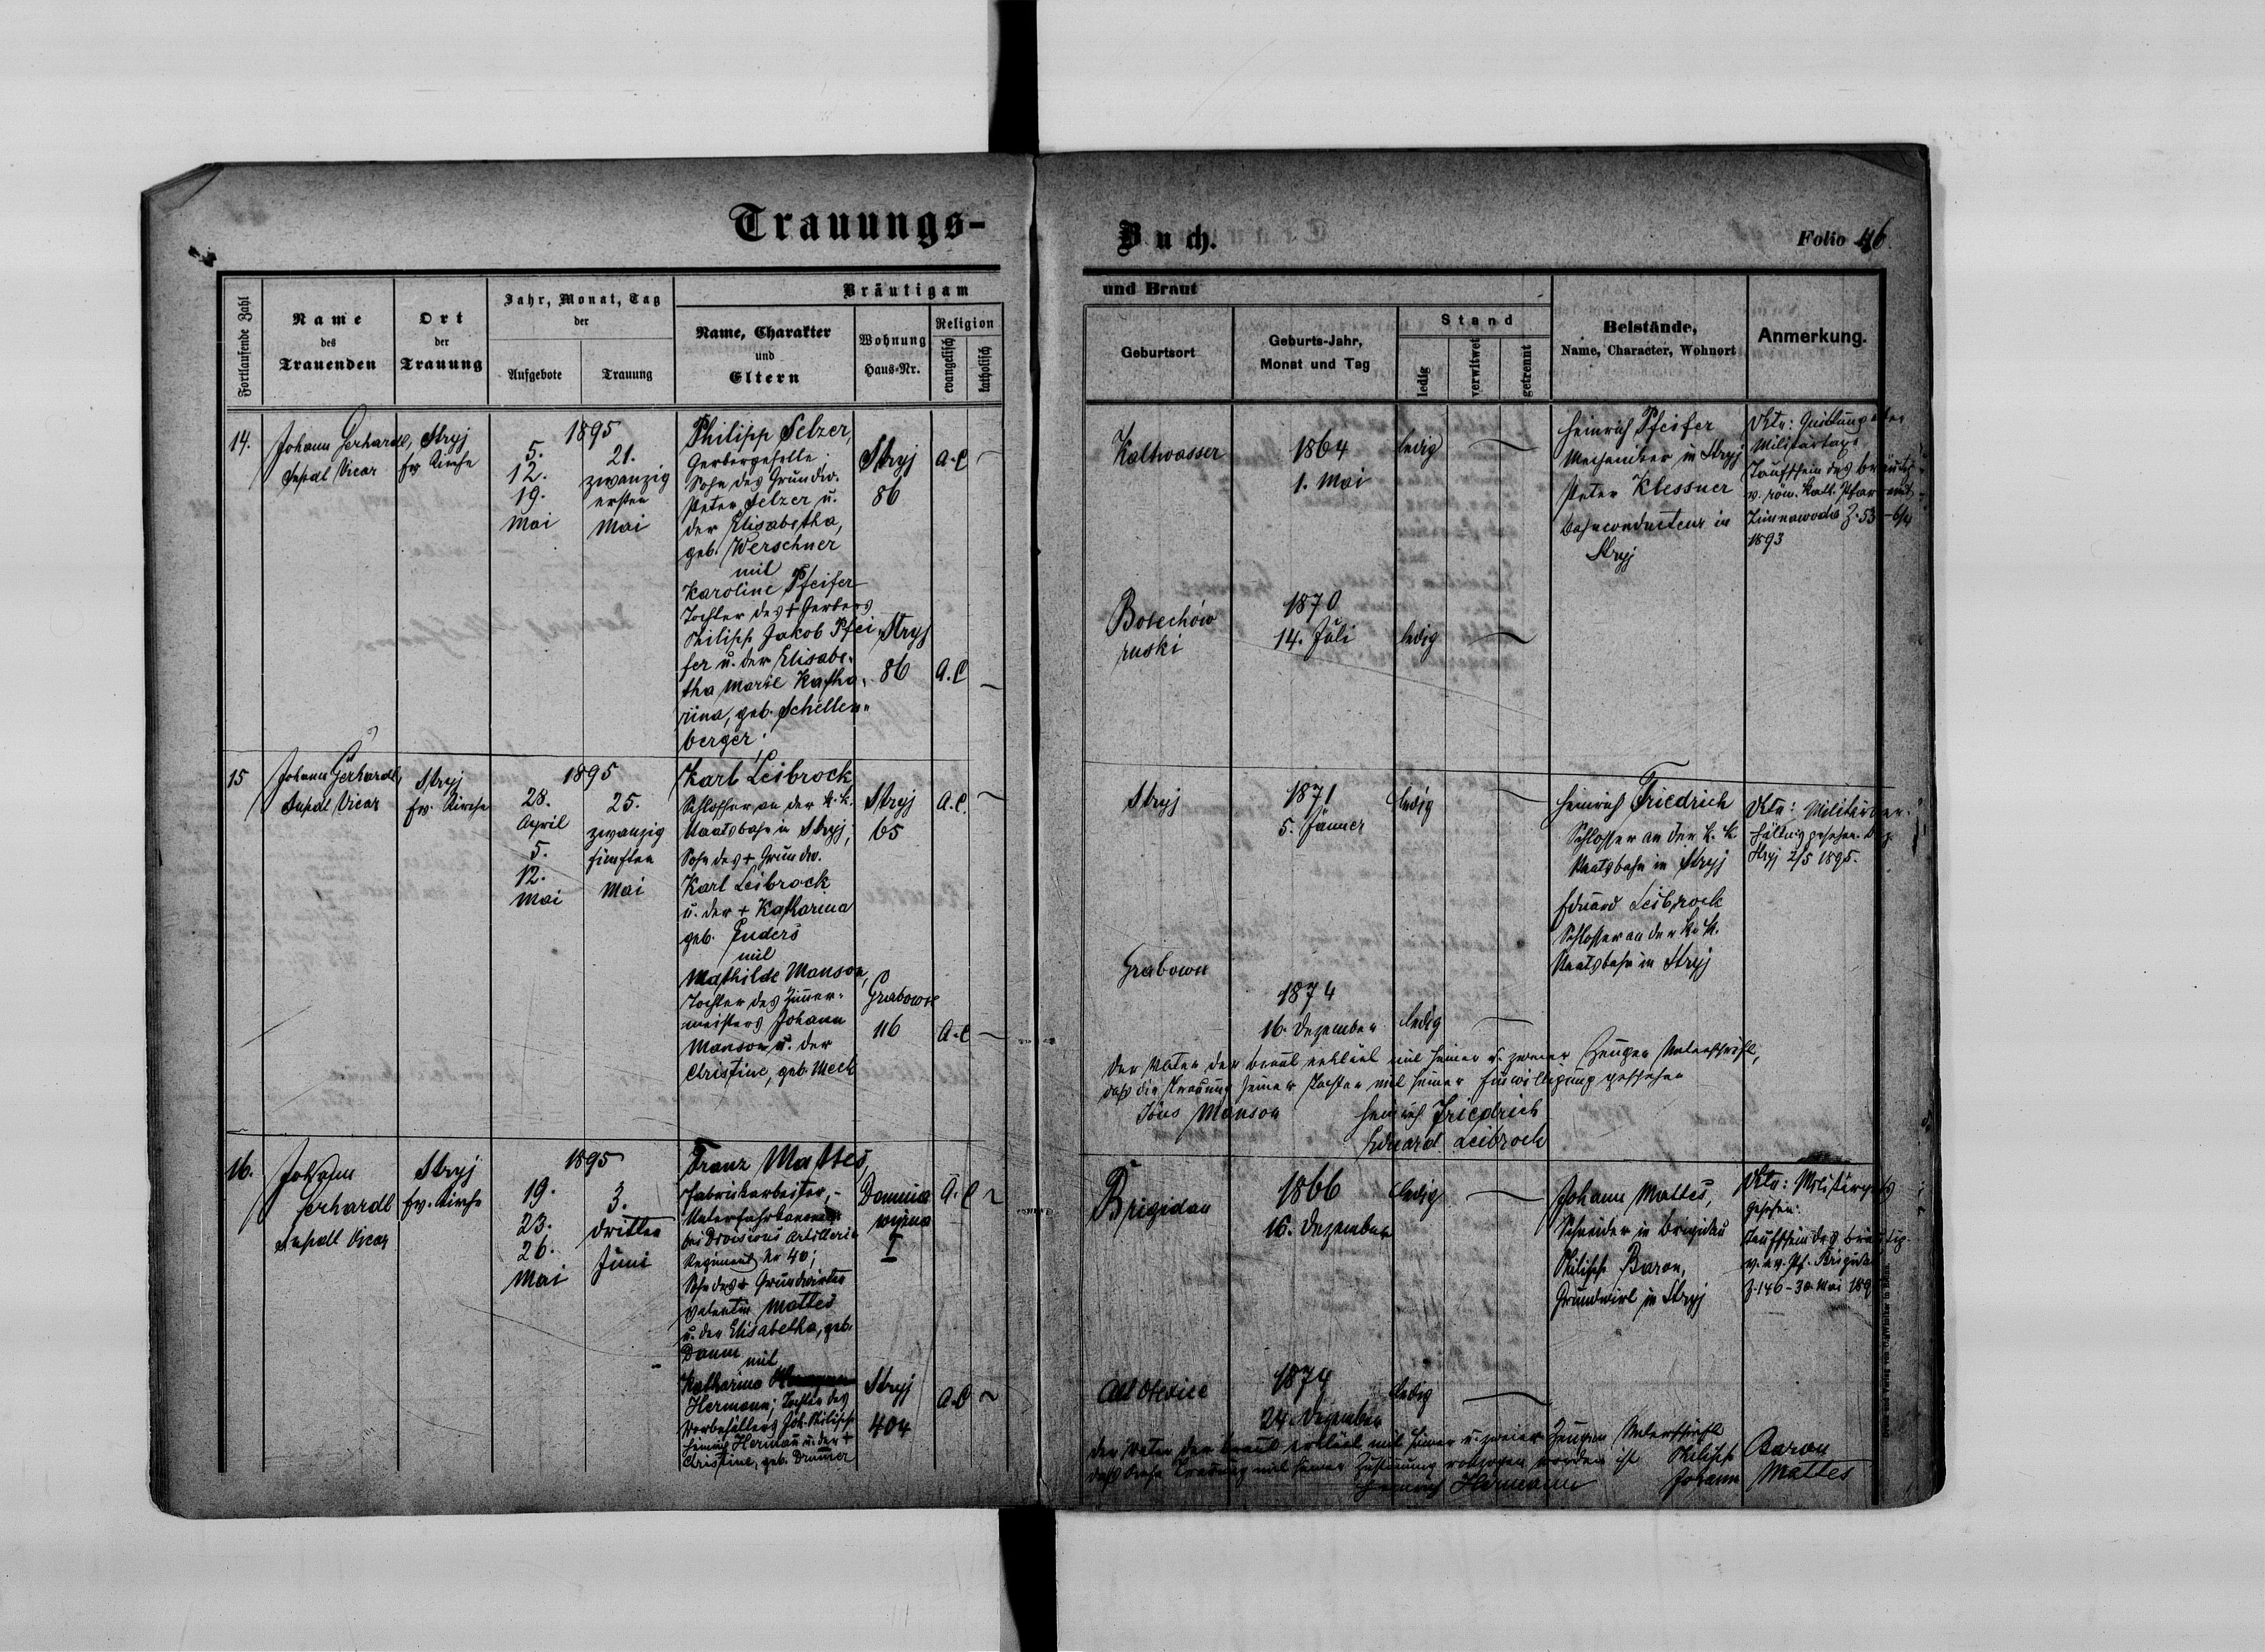 Trauungs-
Buch.
Folio 46.
Fortlaufende Zahl
Name
des
Trauenden
Ort
der
Trauung
Jahr, Monat, Tag
der
Aufgebote
Trauung
Bräutigam
Name, Charakter
und
Eltern
Wohnung
Haus-Nr.
Religion
evangelisch
katholisch
und Braut
Geburtsort
Geburts-Jahr,
Monat und Tag
Stand
ledig
verwitwet
getrennt
Beistände,
Name, Character, Wohnort
Anmerkung.
14.
Johann Gerhardt,
Vicar
Stryj
ev. Kirche
1895
5.
12.
19.
Mai
21.
zwanzig
ersten
Mai
Philipp Selzer,
Gerbergeselle
Sohn des Grundw.
Peter Selzer u.
der Elisabetha,
geb. Werschner
mit
Karoline Pfeifer
Tochter des + Gerbers
Philipp Jakob Pfei-
fer u. der Elisabe-
tha Marie Katha-
rina, geb. Schellen-
berger.
Stryj
86
A.C
Stryj
86
A.C
Kaltwasser
1864
1. Mai
ledig
Bolechów
ruski
1870
14. Juli
ledig
Heinrich Pfeifer
Mechaniker in Stryj
Peter Klessner
Bahnconducteur in
Stryj
Quittung
Militärtaxe
Taufschein des Bräutig.
v. röm. kath. Pfarramt
Zimnawoda Z. 53 - 6/4
1893
15
Johann Gerhardt,
Vicar
Stryj
ev. Kirche
1895
28.
April
5.
12.
Mai
25.
zwanzig
fünften
Mai
Karl Leibrock
Schlosser an der k. k.
Staatsbahn in Stryj;
Sohn des + Grundw.
Karl Leibrock
u. der + Katharina
geb. Enders
mit
Mathilde Manson,
Tochter des Zimmer-
meisters Johann
Manson u. der
Christine, geb. Mech
Stryj
65
A.C.
Grabowce
116
A.C
Stryj
1871
5. Jänner
ledig
Grabowce
1874
16. Dezember
ledig
Heinrich Friedrich
Schlosser an der k. k.
Staatsbahn in Stryj
Eduard Leibrock
Schlosser an der k. k.
Staatsbahn in Stryj
Militärver-
Stryj 2/5 1895.
Der Vater der Braut erklärt mit seiner u. zweier Zeugen Unterschrift,
daß die Trauung seiner Tochter mit seiner Einwilligung geschehen
Manson
Heinrich Friedrich
Eduard Leibrock
16.
Johann
Gerhardt
Vicar
Stryj
ev. Kirche
1895
19.
23.
26.
Mai
3.
dritten
Juni
Franz Mattes,
Fabriksarbeiter,
bei Divisions Artillerie
Regiment Nr 40;
Sohn des + Grundwirtes
Valentin Mattes
u. der Elisabetha, geb.
Daum
mit
Katharina
Hermann; Tochter des
Joh. Philipp
Heinrich Hermann u. der +
Christine, geb. Drumer
I
A.C
Stryj
404
A.C
Brigidau
1866
16. Dezember
ledig
1874
24. Dezember
ledig
Johann Mattes,
Schneider in Brigidau
Philipp Baron,
Grundwirt in Stryj
Militärpass
gesehen.
Taufschein des Bräutig.
v. ev. Pf. Brigidau
Z. 146 - 30. Mai 189
Der Vater der Braut erklärt mit seiner u. zweier Zeugen Unterschrift
daß diese Trauung mit seiner Zustimmung vollzogen worden ist
Philipp Baron
Heinrich Hermann
Johann Mattes